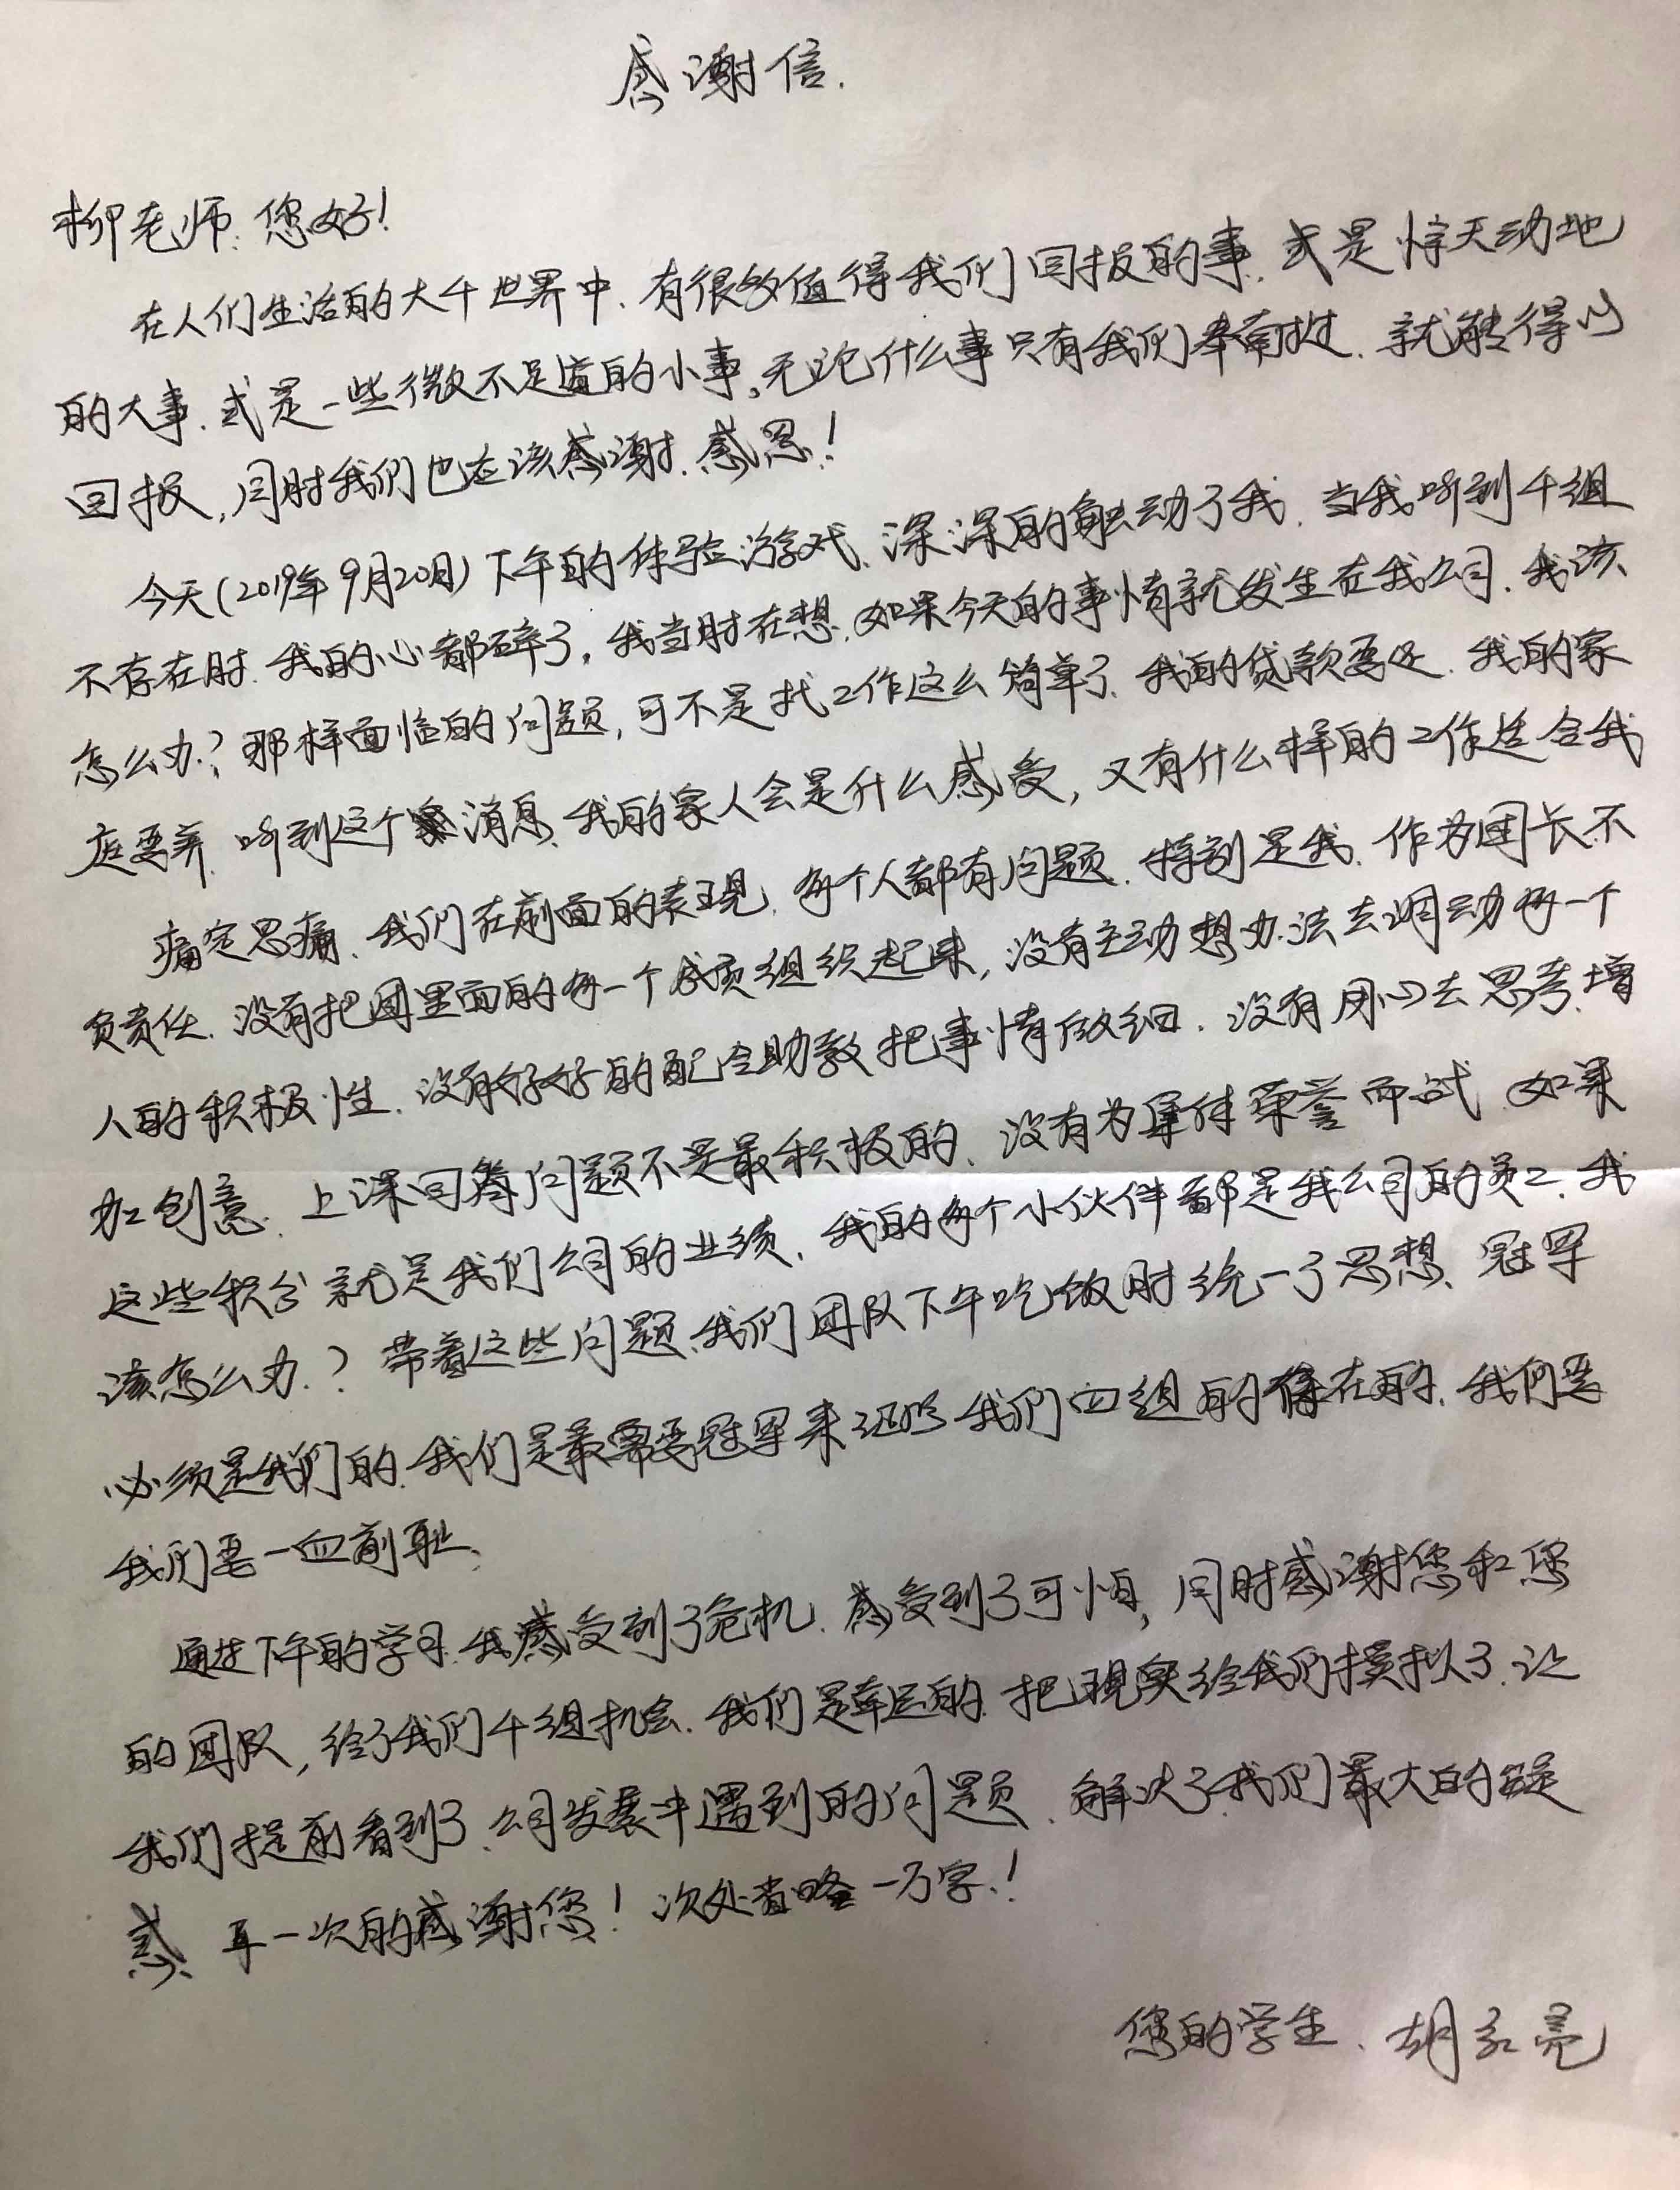 感谢信.
柳老师:您好!
在人们生活的大千世界中、有很多值得我们回报的事、或是惊天动地
的大事、或是一些微不足道的小事。无论什么事只有我们去 就能得以
回报,同时我们也应该感谢、感恩!
今天(2019年9月20日)下午的体验游戏、深深的触动了我、当我听到4组
不存在时、我的心都碎了,我当时在想、如果今天的事情就发生在我公司、我该
怎么办?那样面临的问题,可不是找工作这么简单了、我的贷款要还、我的家
庭要养、听到这个消息、我的家人会是什么感受,又有什么样的工作适合我
痛定思痛、我们在前面的表现、每个人都有问题、特别是我、作为团长、不
负责任、没有把团里面的每一个成员组织起来,没有主动想办法去调动每一个
人的积极性、没有好好的配合助教把事情做细、没有用心去思考、增
加创意、上课回答问题不是最积极的、没有为集体荣誉而战、如果
这些积分就是我们公司的业绩、我的每个小伙伴都是我公司的员工、我
该怎么办?带着这些问题、我们团队下午吃饭时统一了思想、冠军
必须是我们的、我们是最需要冠军来证明我们四组的存在的、我们要
我们要一血前耻、
通过下午的学习、我感受到了危机、感受到了可怕,同时感谢您和您
的团队,给了我们4组机会、我们是幸运的、把现实给我们模拟了、让
我们提前看到了、公司发展中遇到的问题、解决了我们最大的疑
惑、再一次的感谢您!次处省略一万字!
您的学生、胡永亮